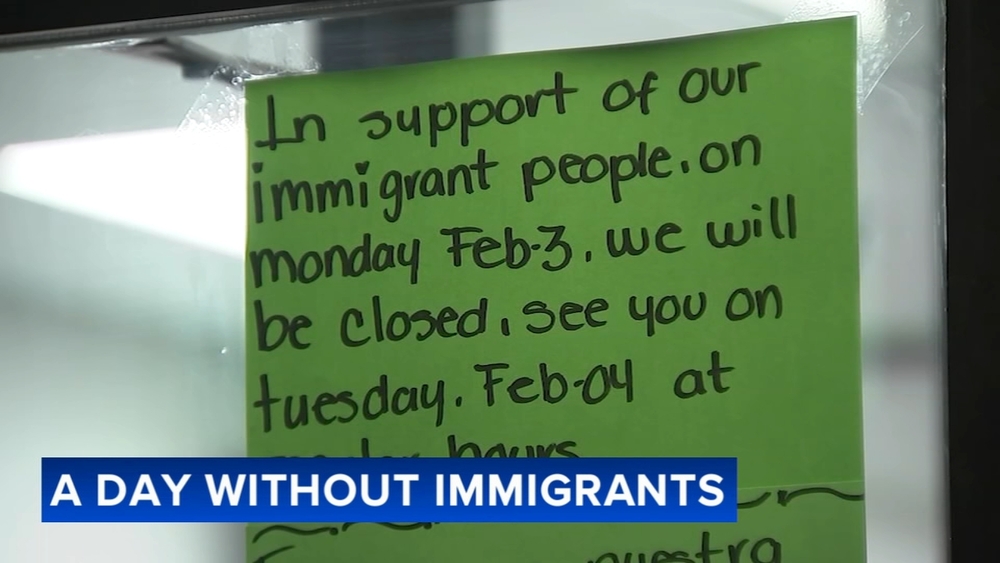 In support of our
immigrant people. on
monday Feb-3. we will
be closed. see you on
tuesday. Feb-04 at
hours
A DAY WITHOUT IMMIGRANTS
nuestra